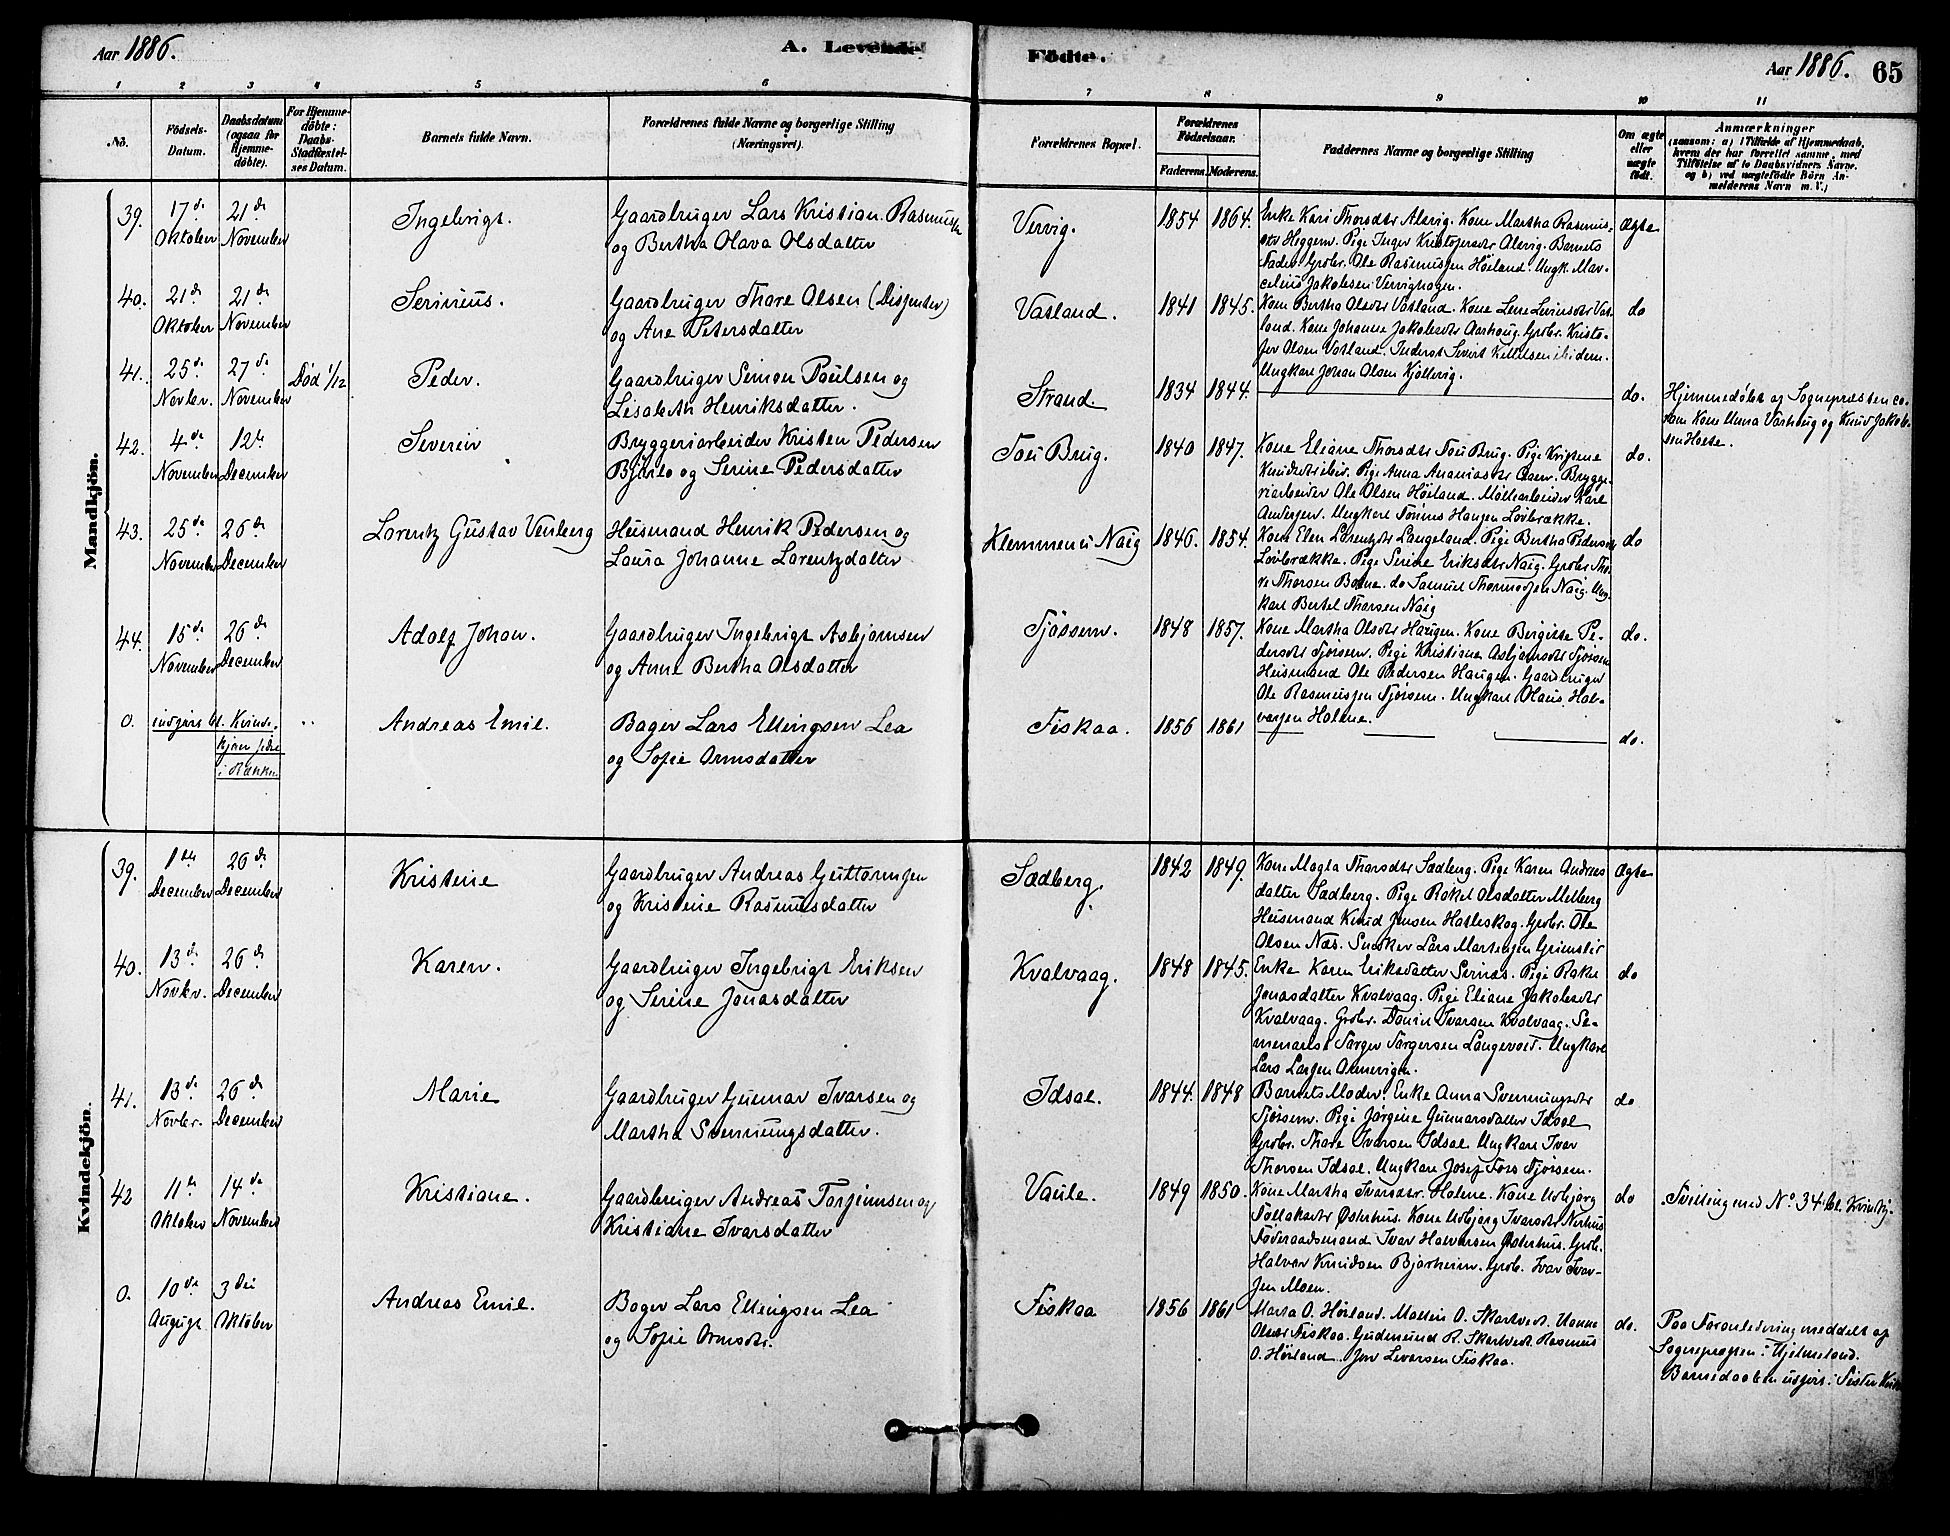 Aar 1886.
A. Levende
Födte.
Aar 1886. 65
1 2 3 4 5 6 7 8 9 10 11
No. Födsels-Datum. Daabsdatum (ogsaa for Hjemmedöbte). For Hjemmedöbte: Daabs-Stadfæstelses Datum. Barnets fulde Navn. Forældrenes fulde Navne og borgerlige Stilling (Næringsvei). Forældrenes Bopæl. Forældrenes Födselsaar. Faderens. Moderens. Faddernes Navne og borgerlige Stilling Om ægte eller uægte födt. Anmærkninger (saasom: a) i Tilfælde af Hjemmedaab, hvem der har forrettet samme, med Tilföielse af to Daabsvidners Navne, og b) ved uægtefödte Börn Anmelderens Navn m. V.)
Mandkjön.
39. 17de Oktober 21de November Ingebrigt. Gaardbruger Lars Kristian Rasmussen
og Bertha Olava Olsdatter Vervig. 1854 1864. Ægte
Enke Kari Thorsdtr Alsvig. Kone Martha Rasmus-
dtr Heggem. Pige Inger Kristofersdtr Alsvig. Barnets
Fader. Grdbr. Ole Rasmussen Höiland. Ungk. Mar-
celius Jakobsen Vervighagen.
40. 21de Oktober 21de November Serinius. Gaardbruger Thore Olsen (Disenter)
og Ane Petersdatter Vatland. 1841 1845. do
Kone Bertha Olsdtr Vatland. Kone Lene Levinsdtr Vat-
land. Kone Johanne Jakobsdtr Aarhoug. Grdbr. Kristo-
fer Olsen Vatland. Inderst Sivert Kittelsen ibidem.
Ungkarl Johan Olsen Kjöllevig.
41. 25de Novbr. 27de November Död 1/12 Peder. Gaardbruger Simon Poulsen og
Lisabeth Henriksdatter. Strand. 1834 1844. do.
Hjemmedöbt af Sognepræsten co-
ram Kone Anna Varhoug og Knud Jakob-
sen Holte.
42. 4de November 12te December Severin Bryggeriarbeider Kristen Pedersen
Björlo og Serine Pedersdatter Tou Brug. 1840 1847. do.
Kone Eliane Thorsdtr Tou Brug. Pige Kristine
Knudsdtr ibid. Pige Anna Ananiasdtr Barn. Brygge-
riarbeider Ole Olsen Höiland. Möllearbeider Karl
Andersen. Ungkarl Tönnes Hansen Lövbrække.
43. 25de November 26de December Lorentz Gustav Venberg Huismand Henrik Pedersen og
Laura Johanne Lorentzdatter Klemmen u Naig 1846. 1854. do
Kone Elen Larentzdtr Langeland. Pige Bertha Pedersdtr
Lövbrække. Pige Serine Eriksdtr Naig. Grdbr Tho-
re Thorsen Botne. do Samuel Thormodsen Naig. Ung-
karl Bertel Thorsen Naig
44. 15de November 26de December Adolf Johan. Gaardbruger Ingebrigt Asbjörnsen
og Anne Bertha Olsdatter Tjössem. 1848 1857. do.
Kone Martha Olsdtr Haugen. Kone Birgitte Pe-
dersdtr Tjössem. Pige Kristiane Asbjörnsdtr Tjössem
Huismand Ole Pedersen Haugen. Gaardbruger
Ole Rasmussen Tjössem. Ungkarl Olaus Hal-
vorsen Holene.
0. indförs bl. Kvinde- kjön sidst i Rækken " Andreas Emil. Bager Lars Ellingsen Lea
og Sofie Ormsdatter Fiskaa. 1856 1861 do.
Kvindekjön.
39. 1ste December 26de December Kristine Gaardbruger Andreas Guttormsen
og Kristine Rasmusdatter Sædberg. 1842 1849. Ægte
Kone Magla Thorsdtr Sædberg. Pige Karen Andreas
datter Sædberg. Pige Rakel Olsdatter Melberg
Huismand Knud Jensen Hatleskog. Grdbr. Ole
Olsen Næs. Snedker Lars Martensen Grimslid
40. 13de Novbr. 26de December Karen. Gaardbruger Ingebrigt Eriksen
og Serine Jonasdatter Kvalvaag. 1848 1845. do
Enke Karen Eriksdatter Pige Rakel
Jonasdatter Kvalvaag. Pige Eliane Jakobsdtr
Kvalvaag. Grdbr. Daniel Ivarsen Kvalvaag. Se-
menarist Torger Torgersen Langevold. Ungkarl
Lars Larsen
41. 13de Novbr. 26de December Marie Gaardbruger Gunnar Ivarsen og
Martha Svenningsdatter. Idsal. 1844. 1848 do
Barnets Moder. Enke Anna Svenningsdtr
Tjössem. Pige Jörgine Gunnarsdatter Idsal
Grdbr. Thore Ivarsen Idsal. Ungkarl Ivar
Thorsen Idsal. Ungkarl Josef Tors Tjössem.
42 11te Oktober 14de November Kristiane. Gaardbruger Andreas Torjimsen og
Kristiane Ivarsdatter Vaule. 1849 1850. do
Kone Martha Ivarsdtr. Holene. Kone Asbjörg
Tollaksdtr Österhus. Kone Asbjörg Ivarsdtr Nerhus
Föderaadsmand Ivar Halvorsen Österhus. Grdb.
Halvor Knudsen Bjørheim. Grdb. Ivar Ivar-
sen Moen.
Tvilling med No 34 bl. Kvindkj.
0. 10de August 3die Oktober Andreas Emil. Bager Lars Ellingsen Lea
og Sofie Ormsdtr. Fiskaa 1856 1861 do.
Marta O. Höiland. Malli O. Skartveit. Hanne
Olsdtr Fiskaa. Gudmund R. Skartveit. Rasmus
O. Höiland. Jon Levorsen Fiskaa.
Paa Foranledning meddelt af
Sognepresten i Hjelmeland.
Barnedaaben udförs i Fister Kirke